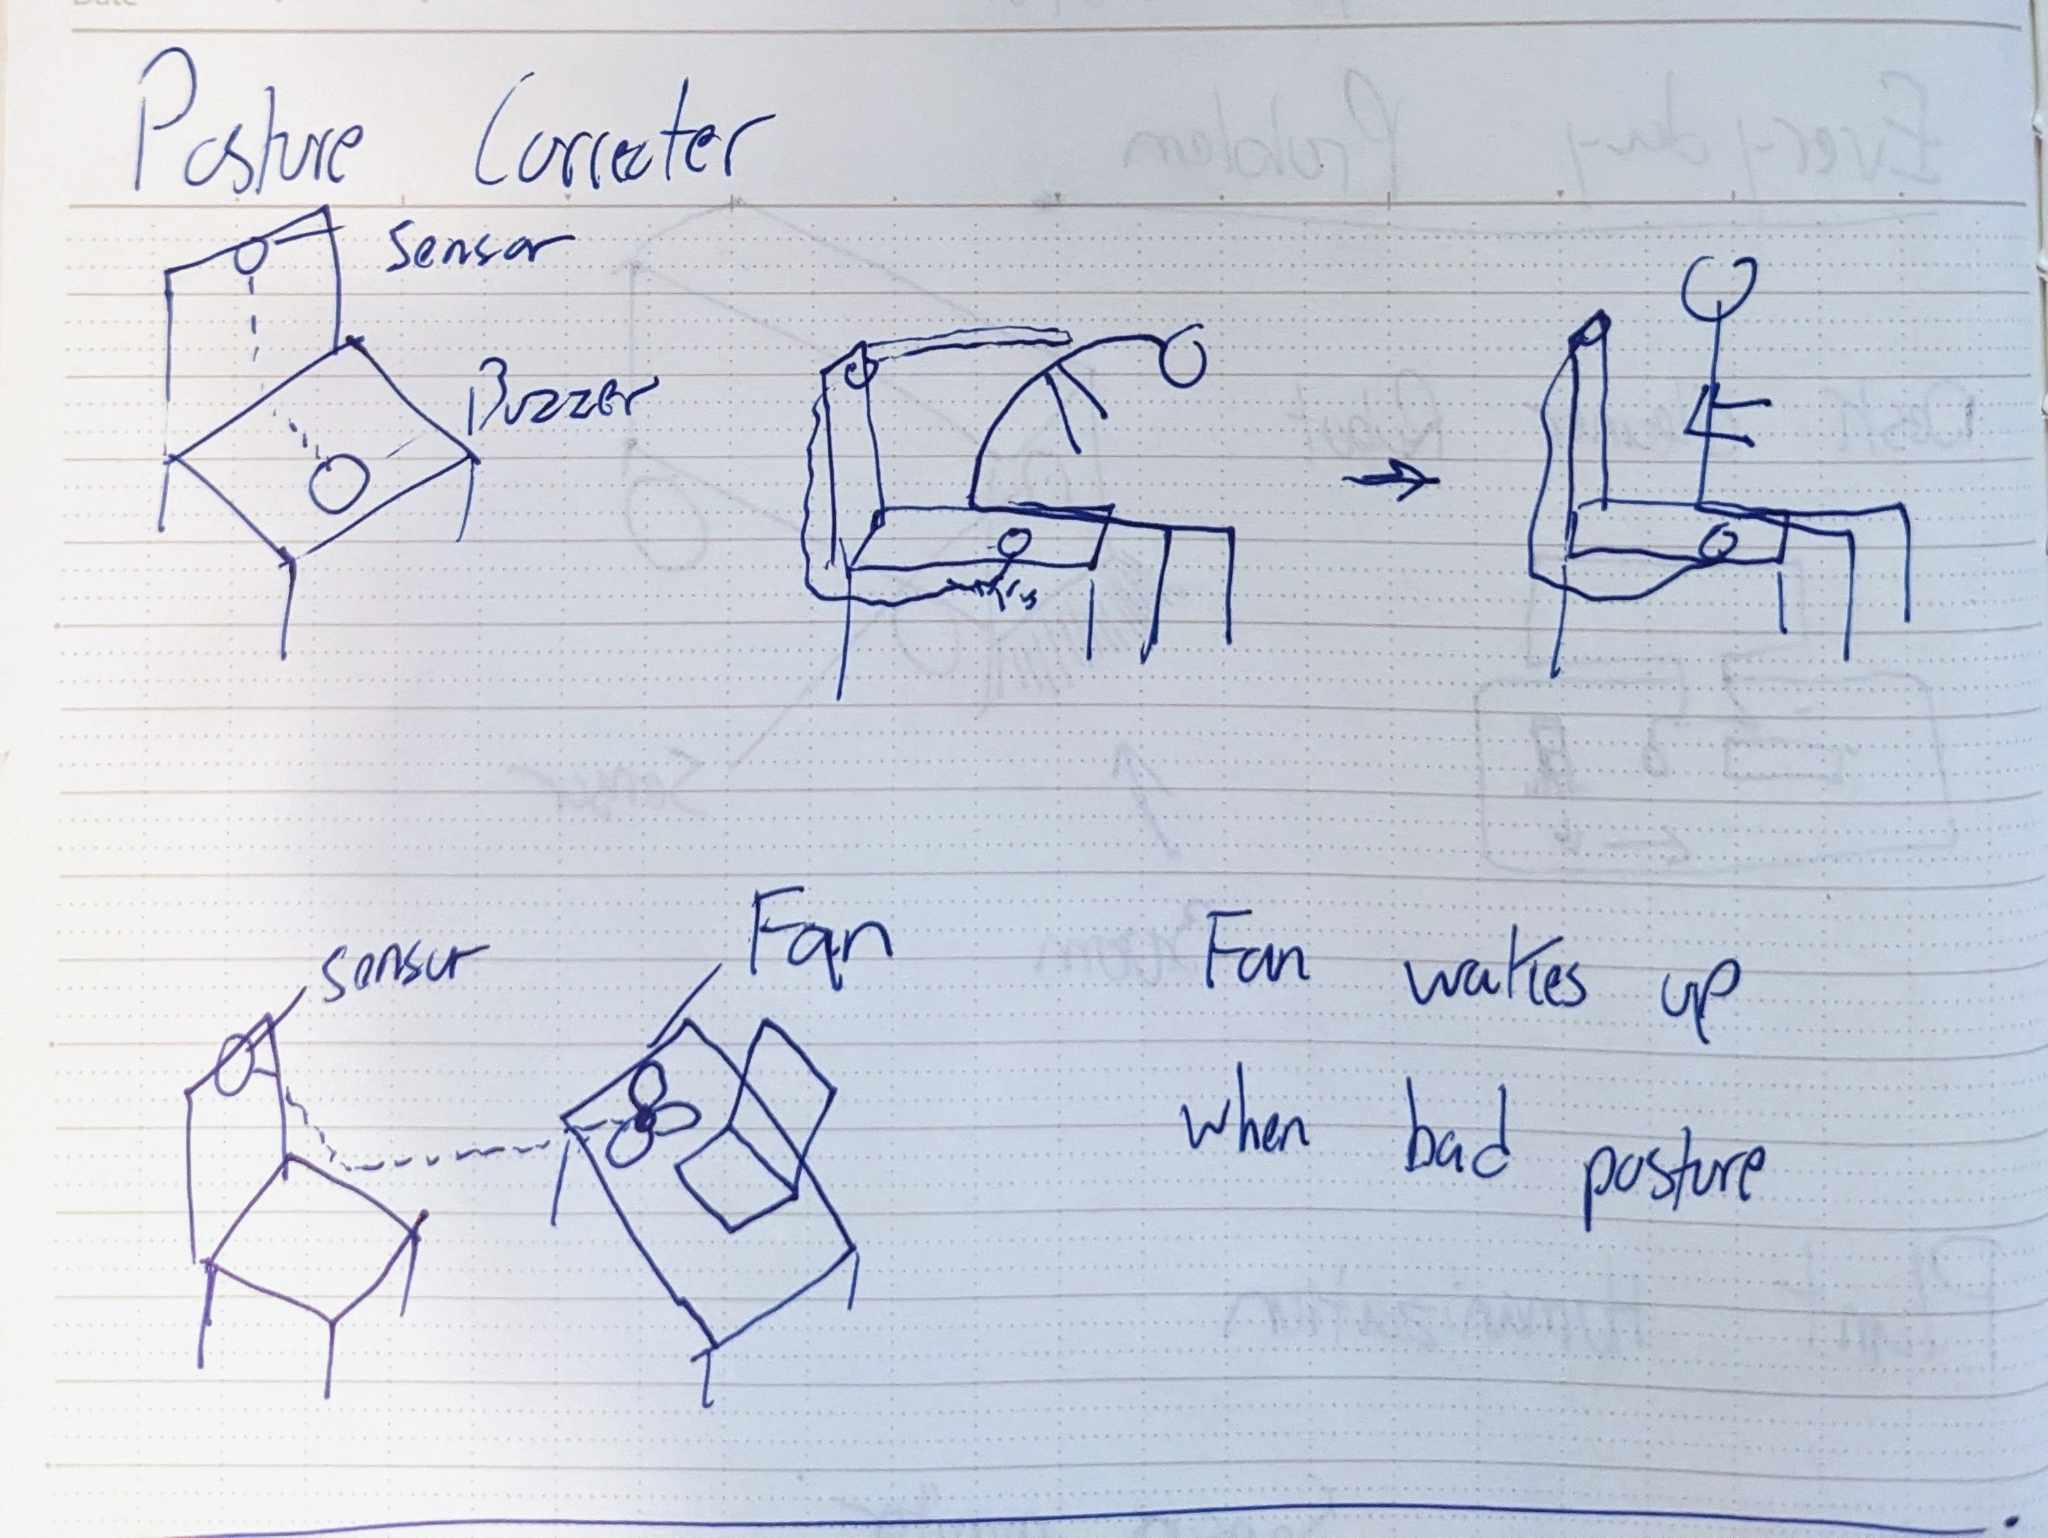 Posture Correcter
Sensor
Buzzer
Sensor
Fan
Fan wakes up
when bad posture